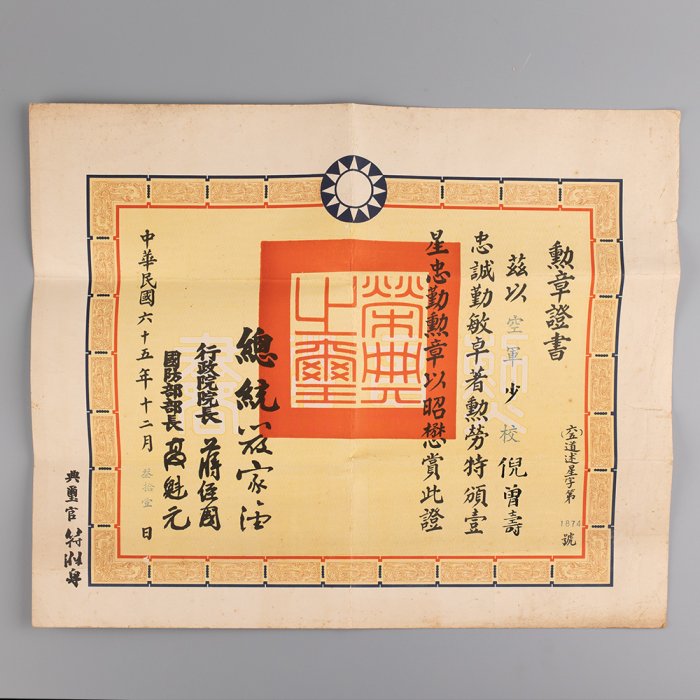 勳章證書
(六五)道述星字第1874號
茲以空軍少校倪曾壽
忠誠勤敏卓著勳勞特頒壹
星忠勤勳章以昭懋賞此證
榮典之璽
總統嚴家淦
行政院院長蔣經國
國防部部長高魁元
中華民國六十五年十二月叁拾壹日
典璽官